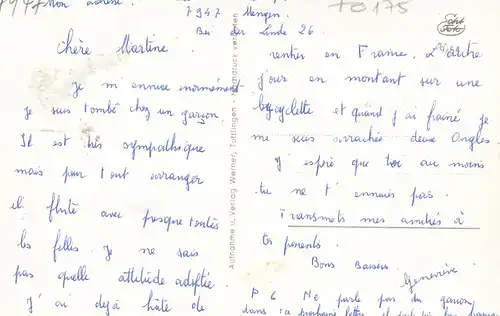 Mon adresse
7947 Mengen.
Bei der Linde 26
70175
Echt Foto
Chère Martine.
Je m ennuie enormément
je suis tombé chez un garçon.
Il est très sympathique
mais pour tout arranger
il flirte avec presque toutes
les filles. Je ne sais
pas quelle attitude adoptée.
J'ai dejà hâte de
Aufnahme u. Verlag Werner, Tuttlingen - Nachdruck verboten
rentrer en France. L'autre
jour en montant sur une
bycyclette et quand j'ai frainé je
me suis arrachée deux ongles.
J'espère que toi au moins
tu ne t'ennuies pas.
Transmets mes amitiés à
tes parents.
Bons Baisers
Geneviève.
PS Ne parle pas du garçon
dans ta prochaine lettre